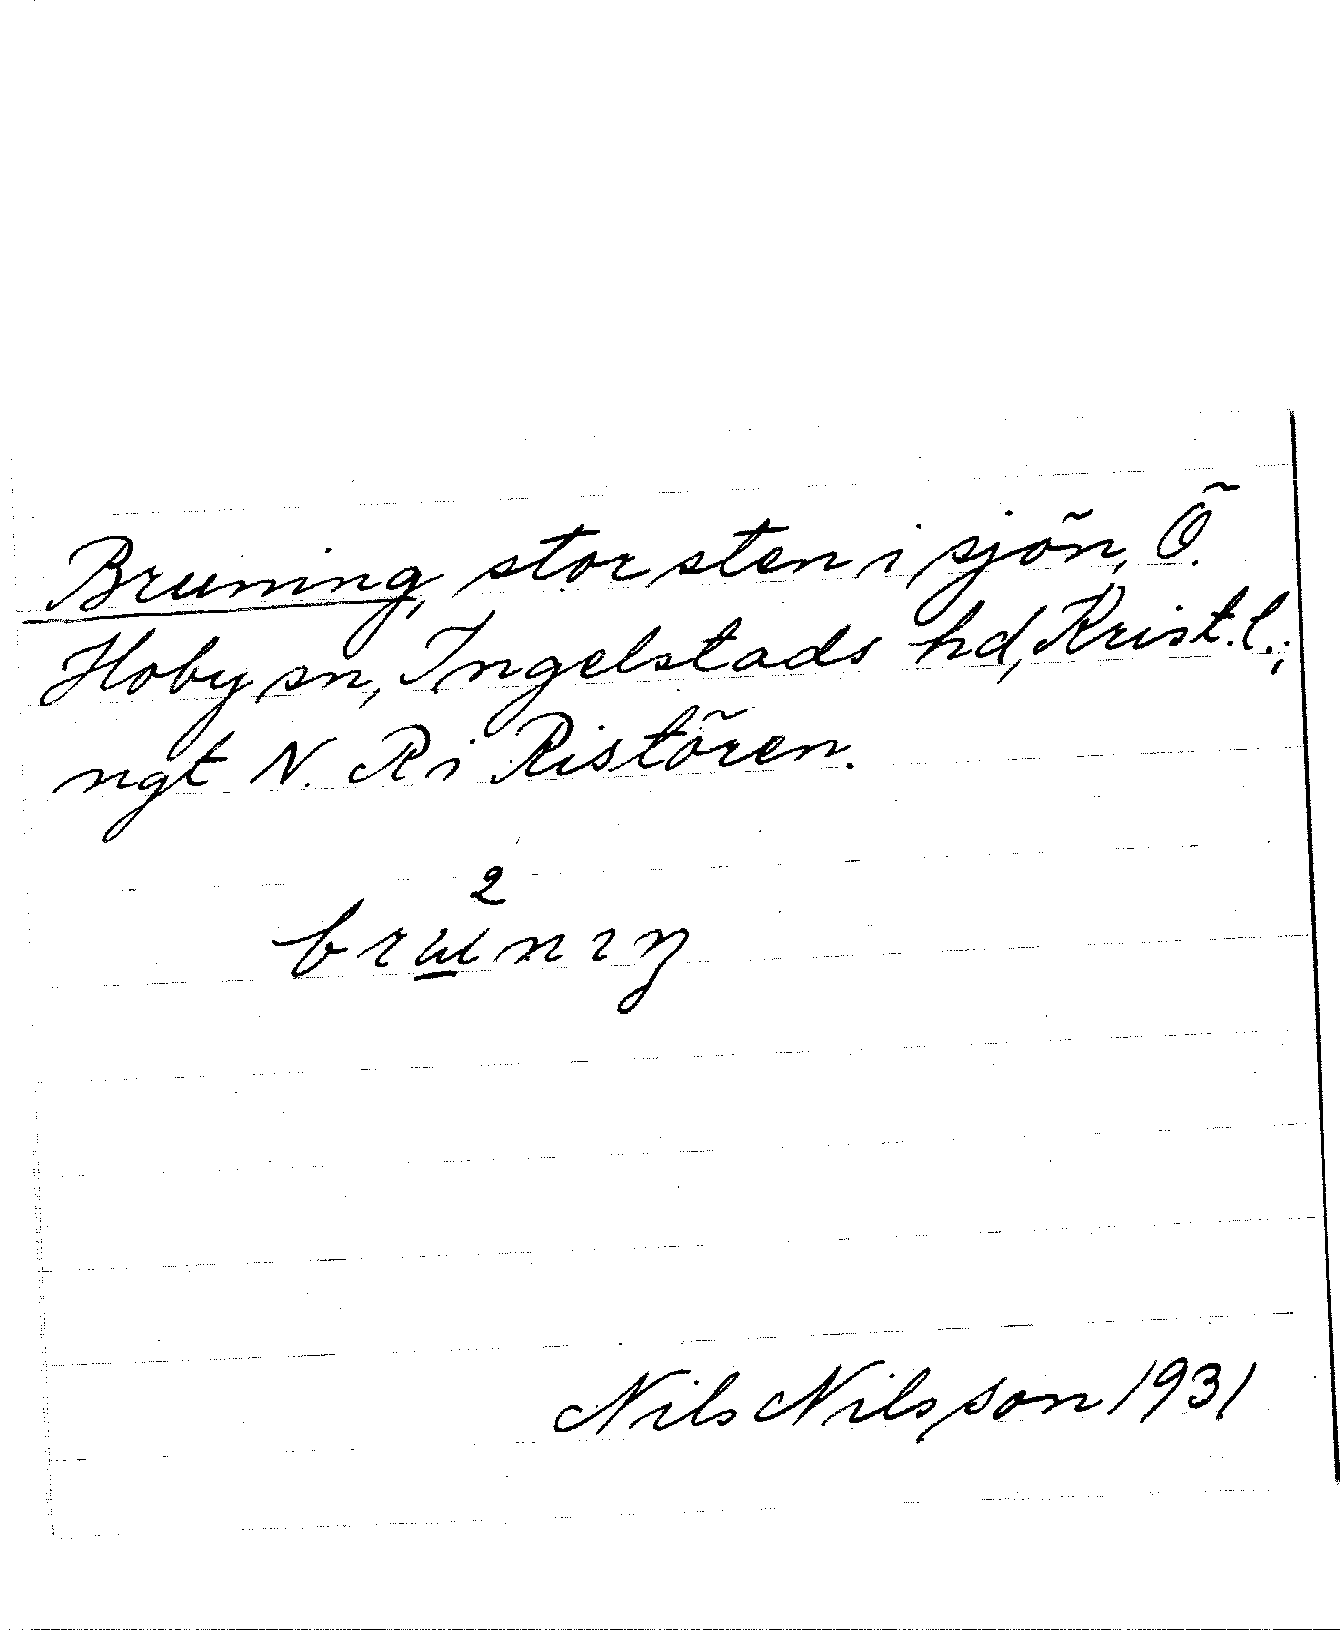 Bruning, stor sten i sjön, Ö.
Hoby sn, Ingelstads hd, Krist.l.;
ngt N. R i Ristören.
2
brɯnıŋ
Nils Nilsson 1931